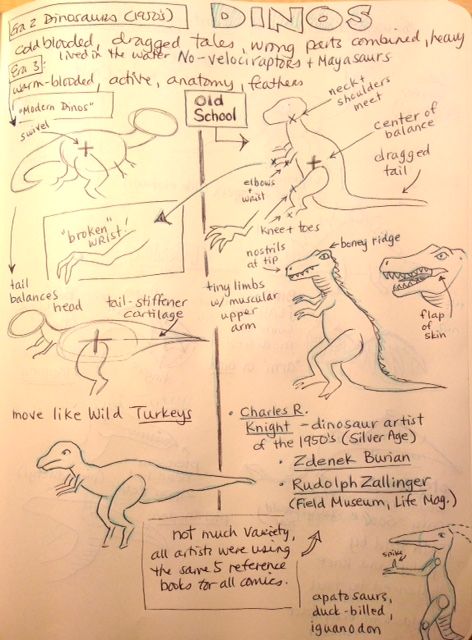 Era 2 Dinosaurs (1950's)
DINOS
coldblooded, dragged tales, wrong parts combined, heavy
lived in the water No-velociraptors + Mayasaurs
Era 3:
warm-blooded, active, anatomy, feathers
"Modern Dinos"
Old
School
neck +
shoulders
meet
swivel
center of
balance
dragged
tail
elbows
+
wrist
"broken"
wrist!
knee + toes
nostrils
at tip
boney ridge
tail
balances
head
tail-stiffener
cartilage
tiny limbs
w/ muscular
upper
arm
flap
of
skin
move like Wild Turkeys
• Charles R.
Knight - dinosaur artist
of the 1950's (Silver Age)
• Zdenek Burian
• Rudolph Zallinger
(Field Museum, Life Mag.)
not much variety,
all artists were using
the same 5 reference
books for all comics.
spike
apatosaurs,
duck-billed,
iguanodon